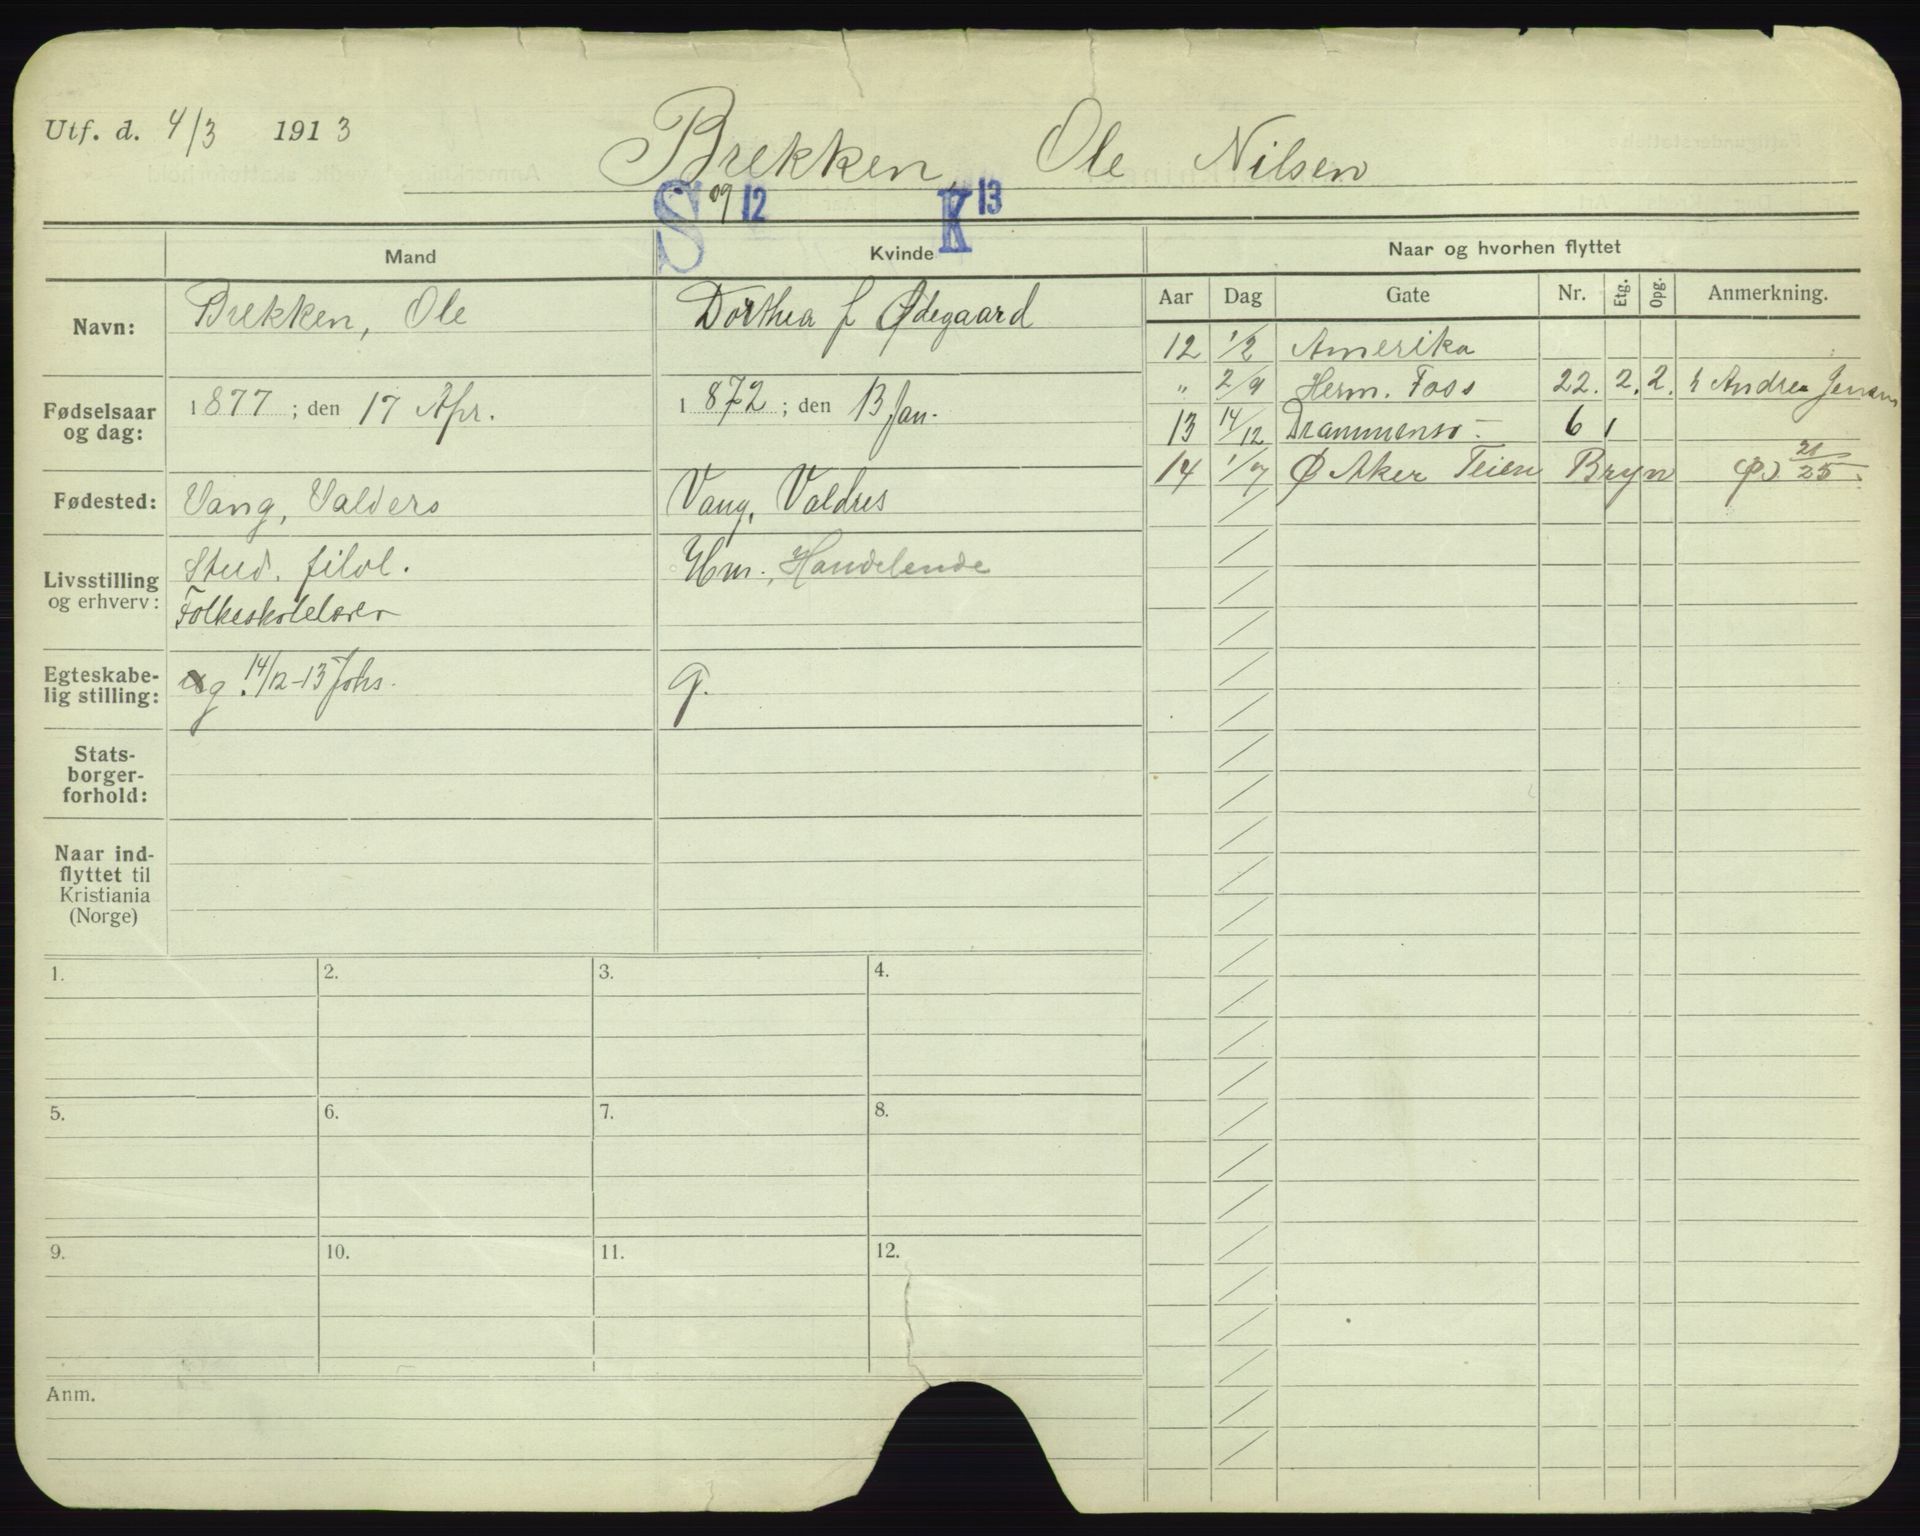 Utf. d. 4/3 1913
Brekken, Ole Nilsen
S 09 12 K 13
Mand Kvinde Naar og hvorhen flyttet
Aar Dag Gate Nr. Etg. Opg. Anmerkning.
Navn: Brekken, Ole Dorthea f Ødegaard
12 1/2 Amerika
" 2/9 Herm. Foss 22. 2. 2. h Andrea Jensen
Fødselsaar og dag: 1877; den 17 Apr. 1872; den 13 Jan.
13 14/12 Drammensv- 6 1
14 1/7 Ø Aker Teien Bryn
Fødested: Vang, Valders Vang, Valdres
Livsstilling og erhverv: Stud. filol. Hm., Handelende
Folkeskolelærer
Egteskabe-
lig stilling: g. 14/12-13 Johs. g.
Stats-
borger-
forhold:
Naar ind-
flyttet til
Kristiania
(Norge)
1. 2. 3. 4.
5. 6. 7. 8.
9. 10. 11. 12.
Anm.